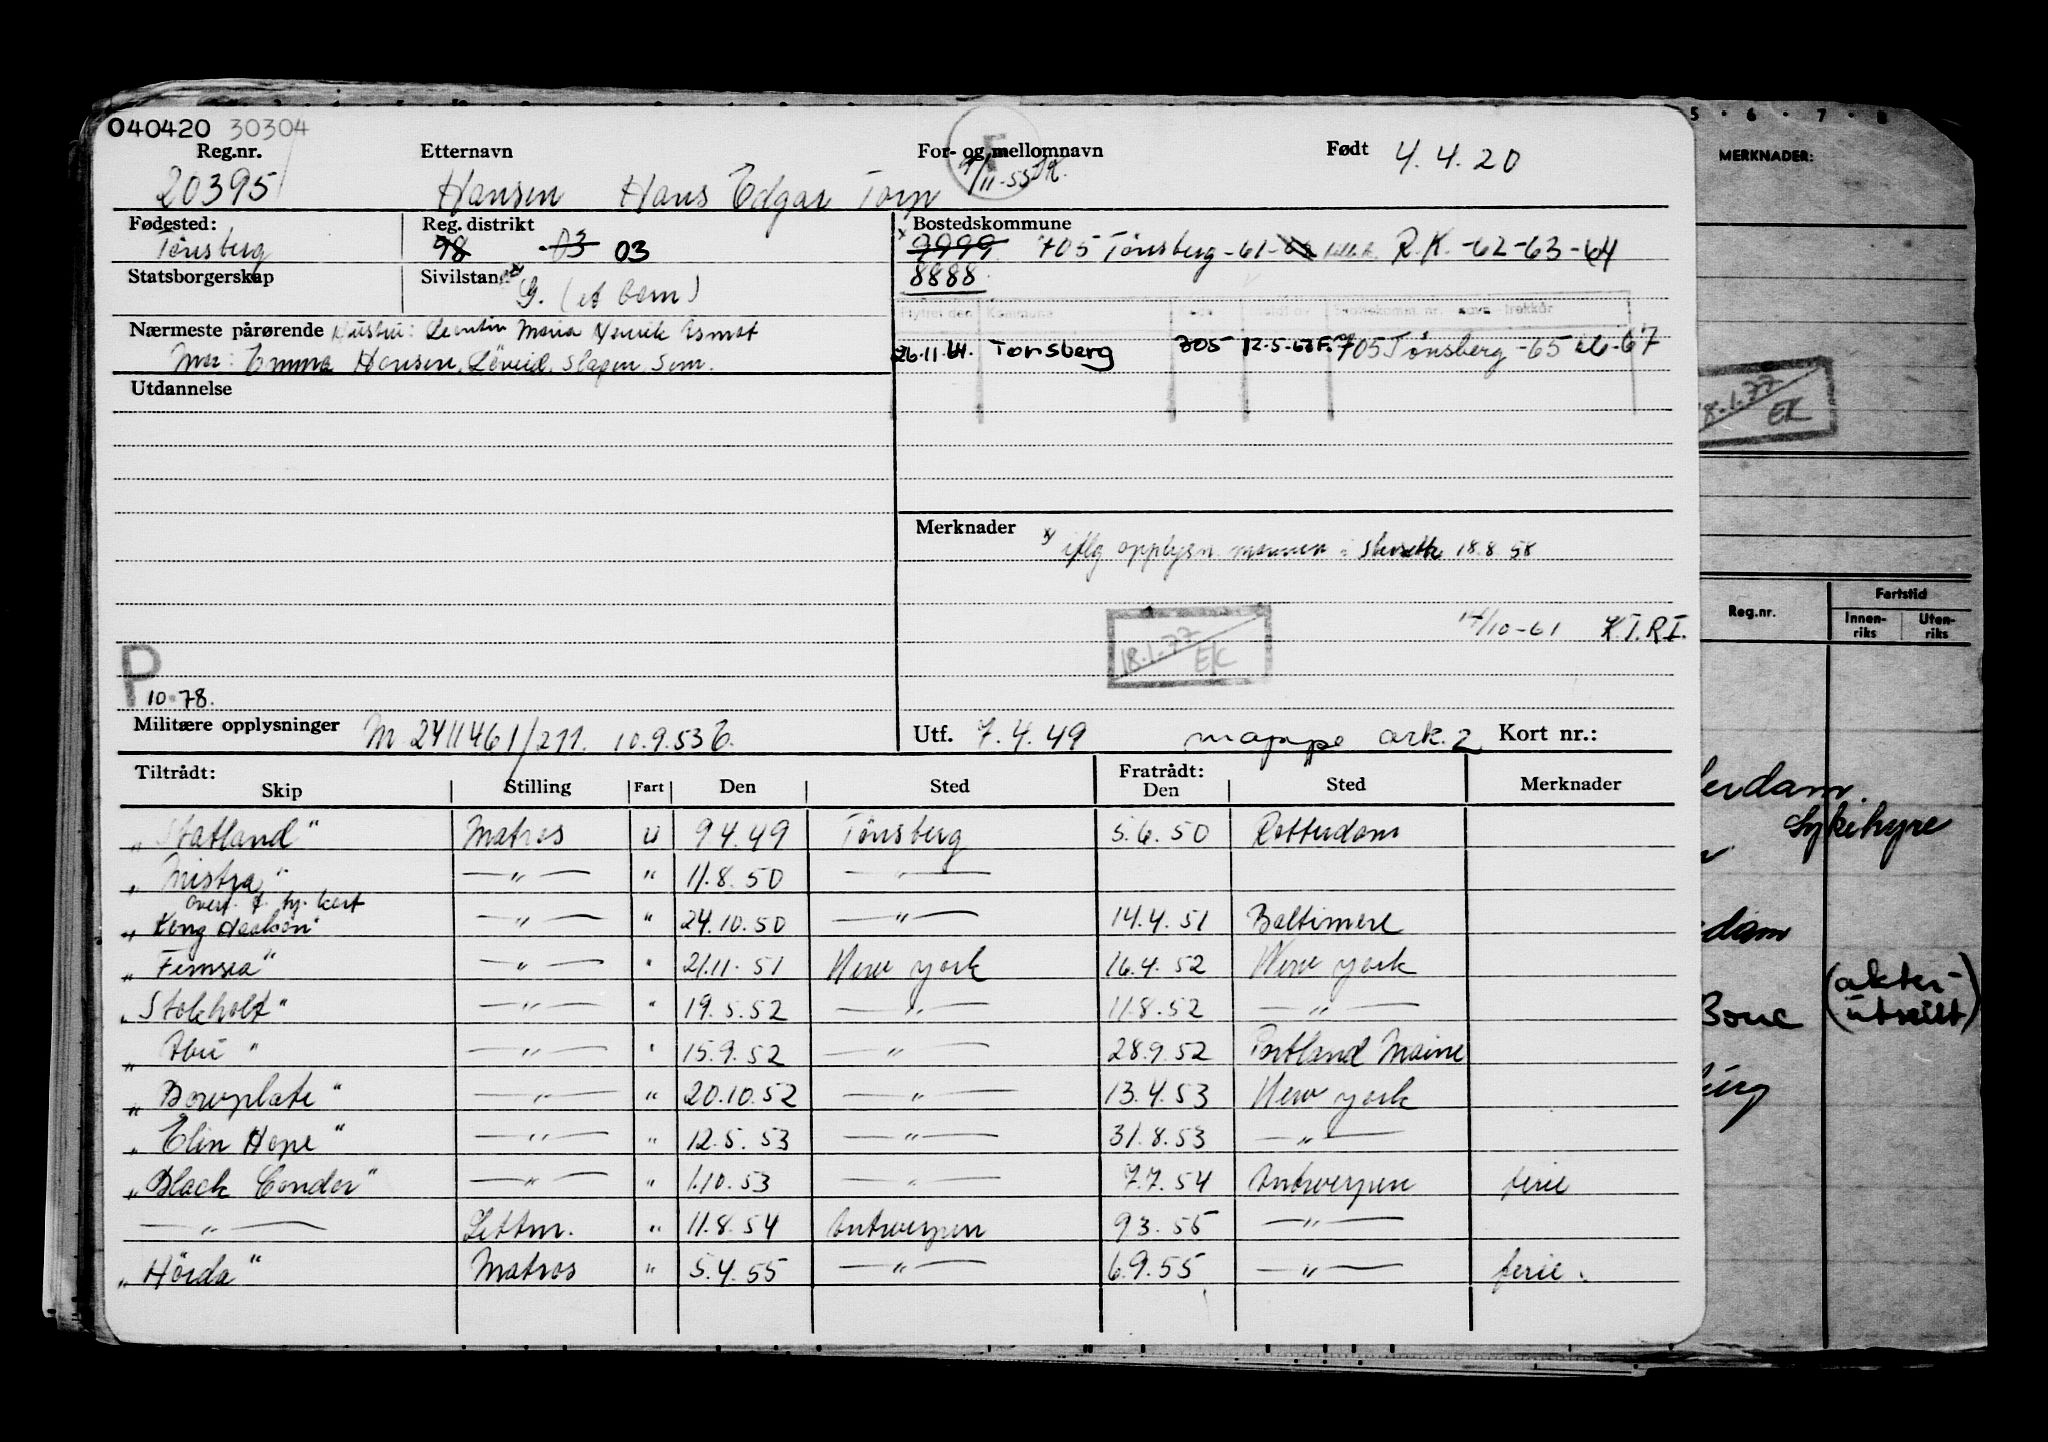 040420 30304
Reg.nr. Etternavn For- og mellomnavn Født 4.4.20
20395 Hansen Hans Edgar Torp 11-55
Fødested: Reg. distrikt Bostedskommune
Tønsberg 98 03 03 9999 705 Tønsberg -61- R.K. -62-63-64
8888
Statsborgerskap Sivilstand G. (et barn)
Nærmeste pårørende Hustru: Maria
Mor: Emma Hansen, Løveid, Slagen, Sem.
26.11.61. Tønsberg 705 12-5-62 F. 705 Tønsberg -65 66-67
Utdannelse
Merknader x) iflg opplysn. 18.8.58
14/10-61 K.I.R.I.
18.1.77 EK
P
10-78.
Militære opplysninger M 2411461/211. 10.9.53 E.
Utf. 7.4.49 mappe ark. 2 Kort nr.:
Tiltrådt: Fratrådt:
Skip Stilling Fart Den Sted Den Sted Merknader
„Statland" Matros u 9.4.49 Tønsberg 5.6.50 Rotterdam
„Mistra" —"— " 11.8.50 —"—
overf. f. sj. kort
„Kong Haakon" —"— " 24.10.50 —"— 14.4.51 Baltimore
„Fernsea" —"— " 21.11.51 New York 16.4.52 New York
„Stokholt" —"— " 19.5.52 —"— 11.8.52 —"—
„Abu" —"— " 15.9.52 —"— 28.9.52 Portland Maine
„Bowplate" —"— " 20.10.52 —"— 13.4.53 New York
„Elin Hope" —"— " 12.5.53 —"— 31.8.53 —"—
„Black Condor" —"— " 1.10.53 —"— 7.7.54 Antwerpen ferie
—"— Lettm. " 11.8.54 Antwerpen 9.3.55 —"—
„Hørda" Matros " 5.4.55 —"— 6.9.55 —"— ferie.
5 · 6 · 7 · 8
MERKNADER:
18.1.77
EK
Reg.nr. Fartstid
Innenriks Utenriks
erdam
Sykehyre
dam
Bouc (akterutseilt)